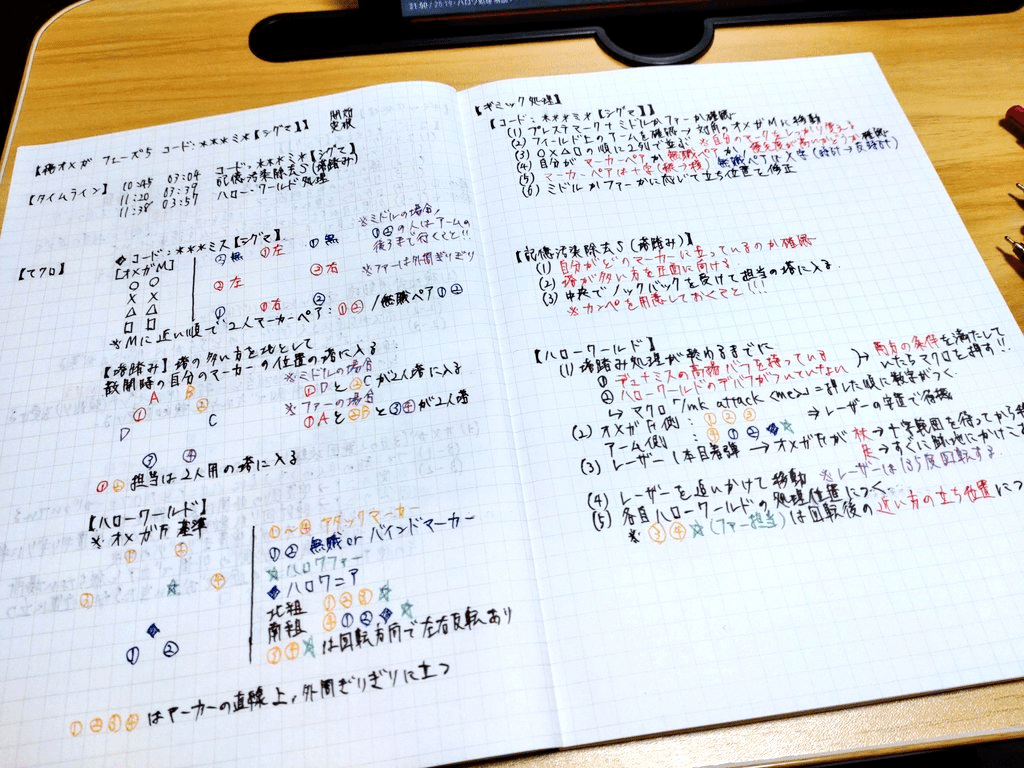 21:50 / 25:19・ハロワ処理 解説
【絶オメガ フェーズ5 コード:***ミ*【シグマ】】
開始
突破
【タイムライン】 10:45 03:04 コード:***ミ*【シグマ】
11:20 03:39 記憶汚染除去S(塔踏み)
11:38 03:57 ハロー・ワールド処理
【マクロ】
◆コード:***ミス【シグマ】
[オメガM]
○ ○
X X
△ △
□ □
②無 ①左 ①無
②左 ②右
① ①右 ②
※ミドルの場合、
①②の人はアームの
後ろまで行くこと!!
※ファーは外周ぎりぎり
※Mに近い順で2人マーカーペア:①② /無職ペア①②
【塔踏み】塔の多い方を北として
散開時の自分のマーカーの位置の塔に入る
A B
① ②
D C
③ ④
※ミドルの場合
①Dと②Cが2人塔に入る
※ファーの場合
①Aと②Bと③④が2人塔
①②担当は2人用の塔に入る
【ハローワールド】
※オメガF基準
① ②
③ ☆ ④
◆
① ②
①〜④ アタックマーカー
①② 無職orバインドマーカー
☆ハロワファー
◆ハロワニア
北組 ①②③☆
南組 ④①②◆☆
③④☆は回転方向で左右反転あり
①②③④はマーカーの直線上、外周ぎりぎりに立つ
【ギミック処理】
【コード:***ミ*【シグマ】】
(1) プレステマーク+ミドルかファーか確認
(2) フィールド上のアームを確認→対角のオメガMに移動
(3) ○X△□の順に2列で並ぶ ※自分のマークをしっかり覚える
(4) 自分がマーカーペアか無職ペアか、優先度が高いかどうか確認
(5) マーカーペアは十字 無職ペアはX字(時計→反時計)
(6) ミドルかファーかに応じて立ち位置を修正
【記憶汚染除去S(塔踏み)】
(1) 自分がどのマーカーに立っているのか確認
(2) 塔が多い方を正面に向ける
(3) 中央でノックバックを受けて担当の塔に入る
※カンペを用意しておくこと!!!
【ハローワールド】
(1) 塔踏み処理が終わるまでに
① デュナミスの バフを持っている
② ハローワールドのデバフがついていない
→両方の条件を満たして
いたらマクロを押す!!
↳マクロ「/mk attack <me>」=押した順に数字がつく。
(2) オメガF側:①②③
アーム側:④①②◆☆
⇒レーザーの安置で待機
(3) レーザー1本目着弾→オメガFが 杖→十字範囲を待ってから移
足→すぐに 地にかけこ
(4) レーザーを追いかけて移動 ※レーザーは 度回転する
(5) 各自ハローワールドの処理位置につく。
※③④☆(ファー担当)は回転後の近い方の立ち位置につ